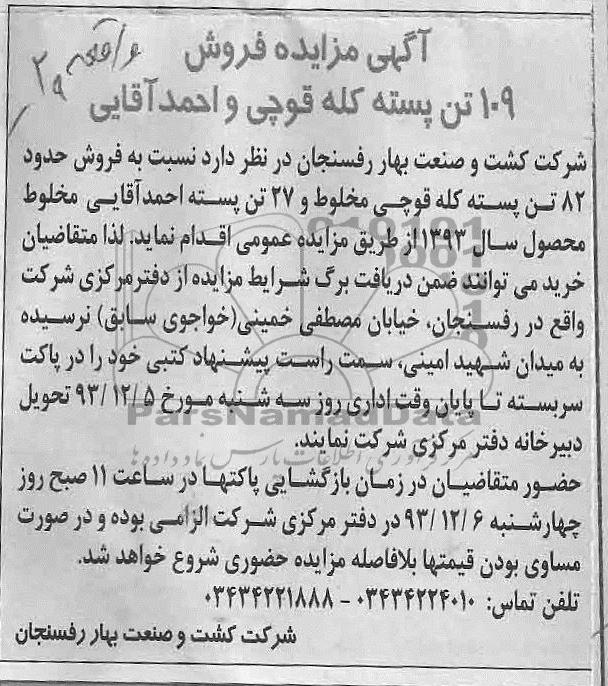 آگهی مزایده فروش
۱۰۹ تن پسته کله قوچی و احمدآقایی
شرکت کشت و صنعت بهار رفسنجان در نظر دارد نسبت به فروش حدود
۸۲ تن پسته کله قوچی مخلوط و ۲۷ تن پسته احمدآقایی مخلوط
محصول سال ۱۳۹۳ از طریق مزایده عمومی اقدام نماید. لذا متقاضیان
خرید می توانند ضمن دریافت برگ شرایط مزایده از دفترمرکزی شرکت
واقع در رفسنجان، خیابان مصطفی خمینی(خواجوی سابق) نرسیده
به میدان شهید امینی، سمت راست پیشنهاد کتبی خود را در پاکت
سربسته تا پایان وقت اداری روز سه شنبه مورخ ۹۳/۱۲/۵ تحویل
ParsNamadData
دبیرخانه دفتر مرکزی شرکت نمایند.
حضور متقاضیان در زمان بازگشایی پاکتها در ساعت ۱۱ صبح روز
چهارشنبه ۹۳/۱۲/۶ در دفتر مرکزی شرکت الزامی بوده و در صورت
مساوی بودن قیمتها بلافاصله مزایده حضوری شروع خواهد شد.
تلفن تماس: ۰۳۴۳۴۲۲۴۰۱۰ - ۰۳۴۳۴۲۲۱۸۸۸
شرکت کشت و صنعت بهار رفسنجان